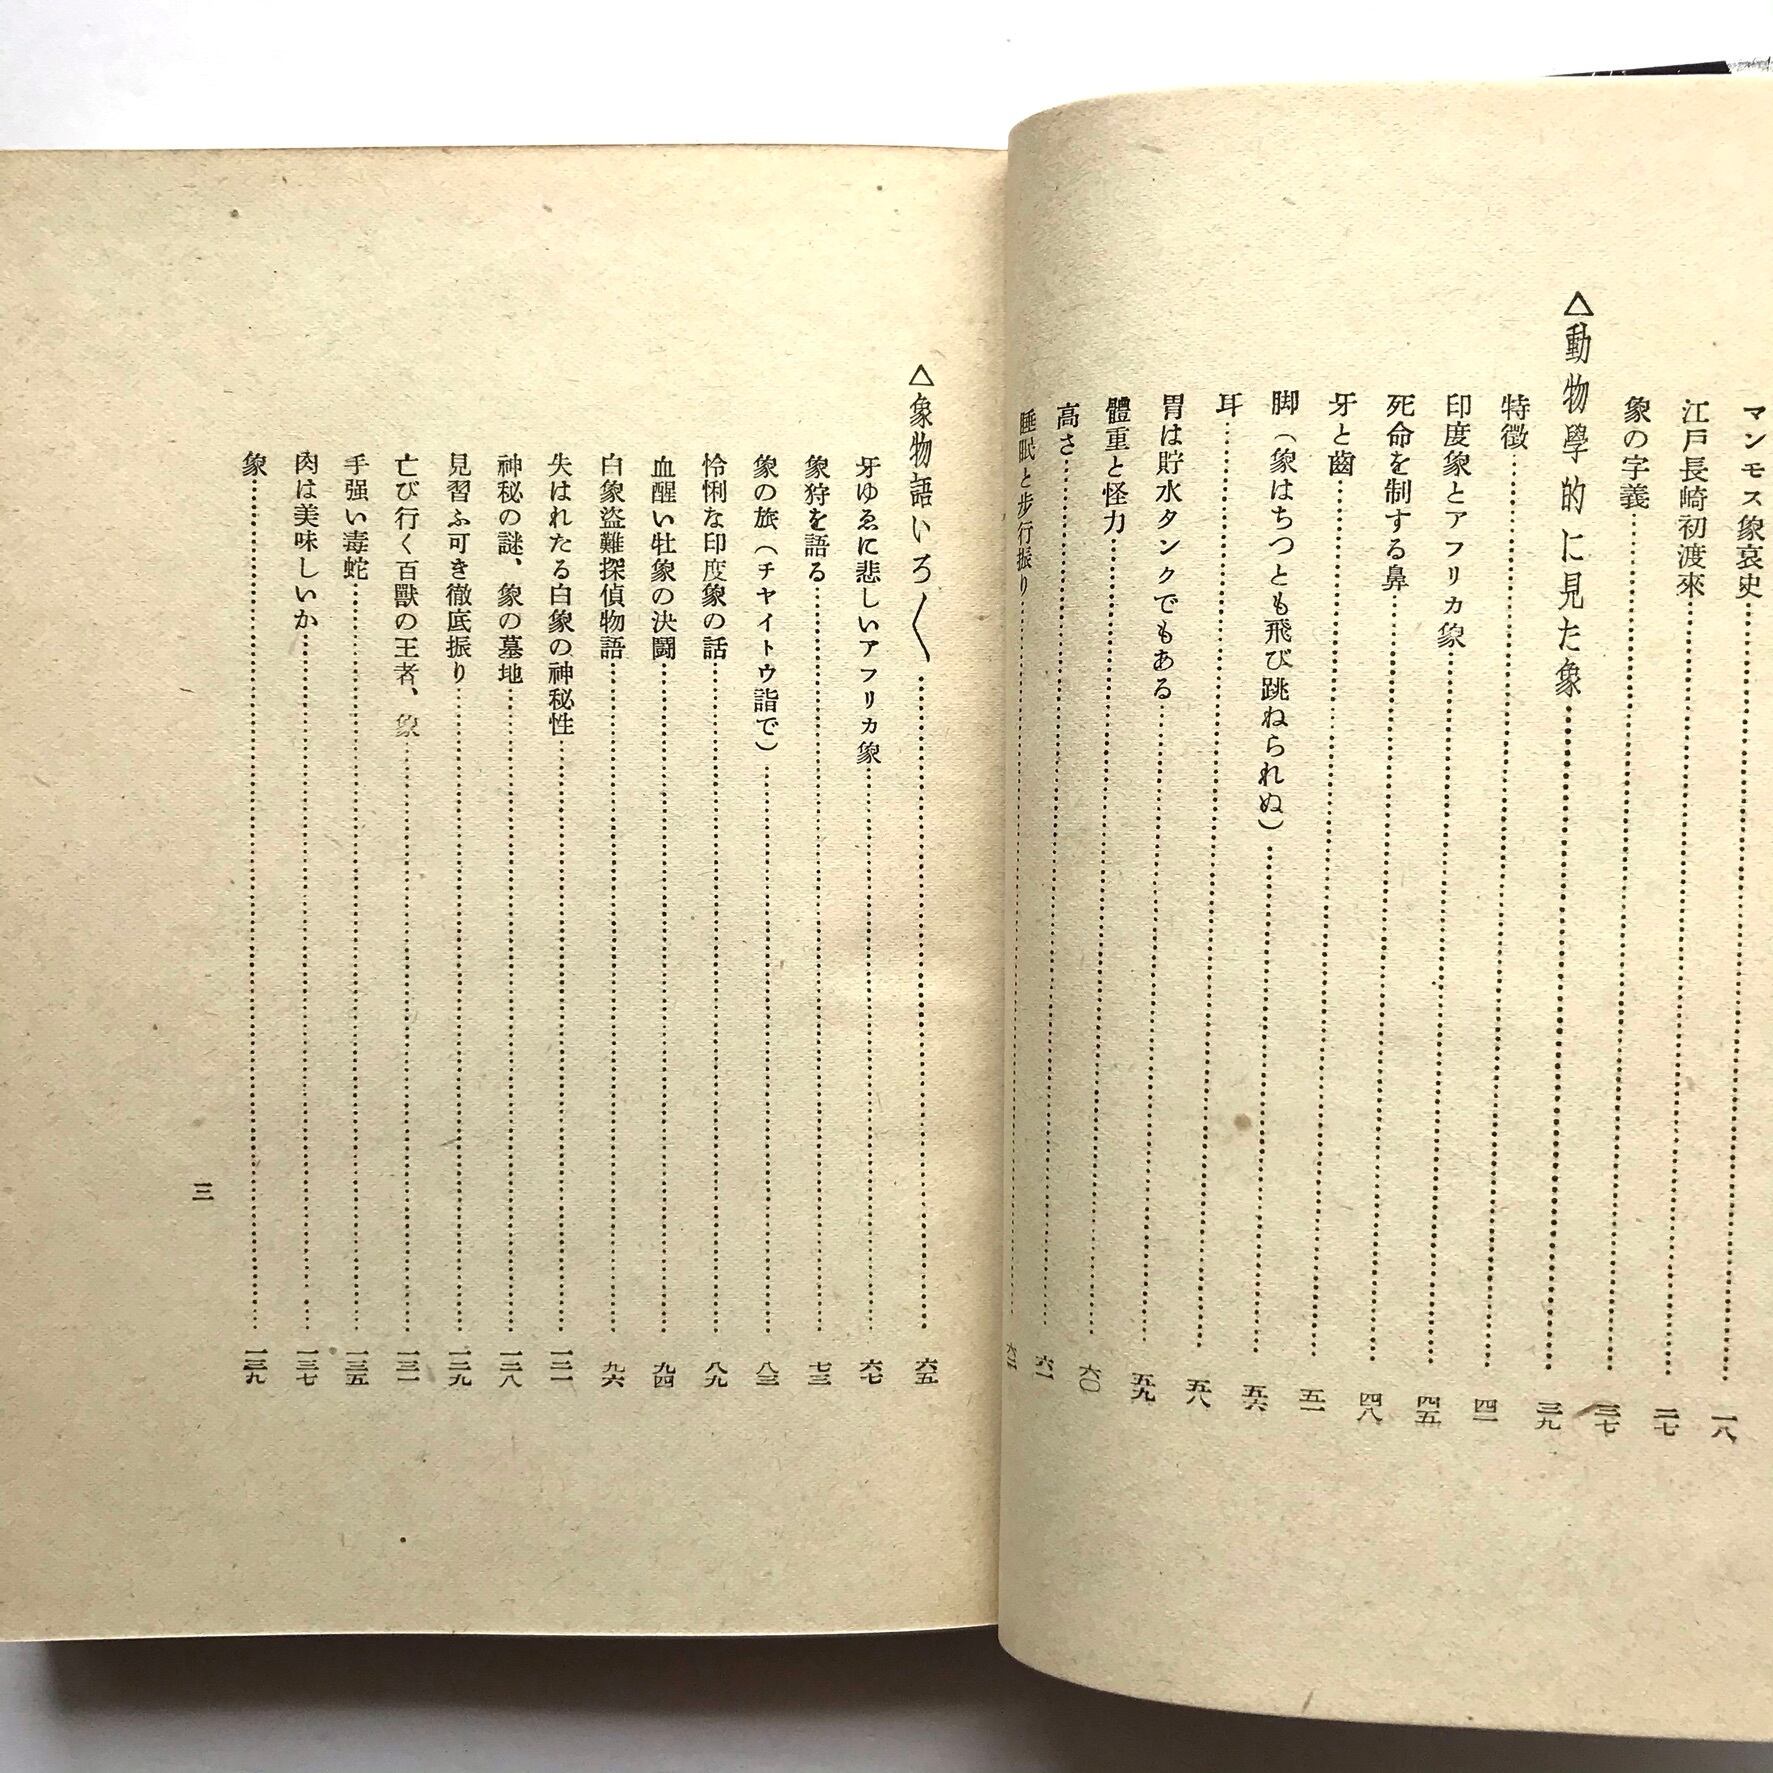 マンモス象哀史……一八
江戸長崎初渡來……二七
象の字義……三七
△動物學的に見た象……三九
特徴……四一
印度象とアフリカ象……四五
死命を制する鼻……四八
牙と齒……五一
脚（象はちつとも飛び跳ねられぬ）……五六
耳……五八
胃は貯水タンクでもある……五九
體重と怪力……六〇
高さ……六一
睡眠と步行振り……
△象物語いろ〳〵……六五
牙ゆゑに悲しいアフリカ象……六七
象狩を語る……七三
象の旅（チヤイトウ詣で）……八三
怜悧な印度象の話……八九
血醒い牡象の決闘……九四
白象盜難探偵物語……九六
失はれたる白象の神秘性……一二一
神秘の謎、象の墓地……一二八
見習ふ可き徹底振り……一二九
亡び行く百獸の王者、象……一三一
手强い毒蛇……一三五
肉は美味しいか……一三七
象……一三九
三